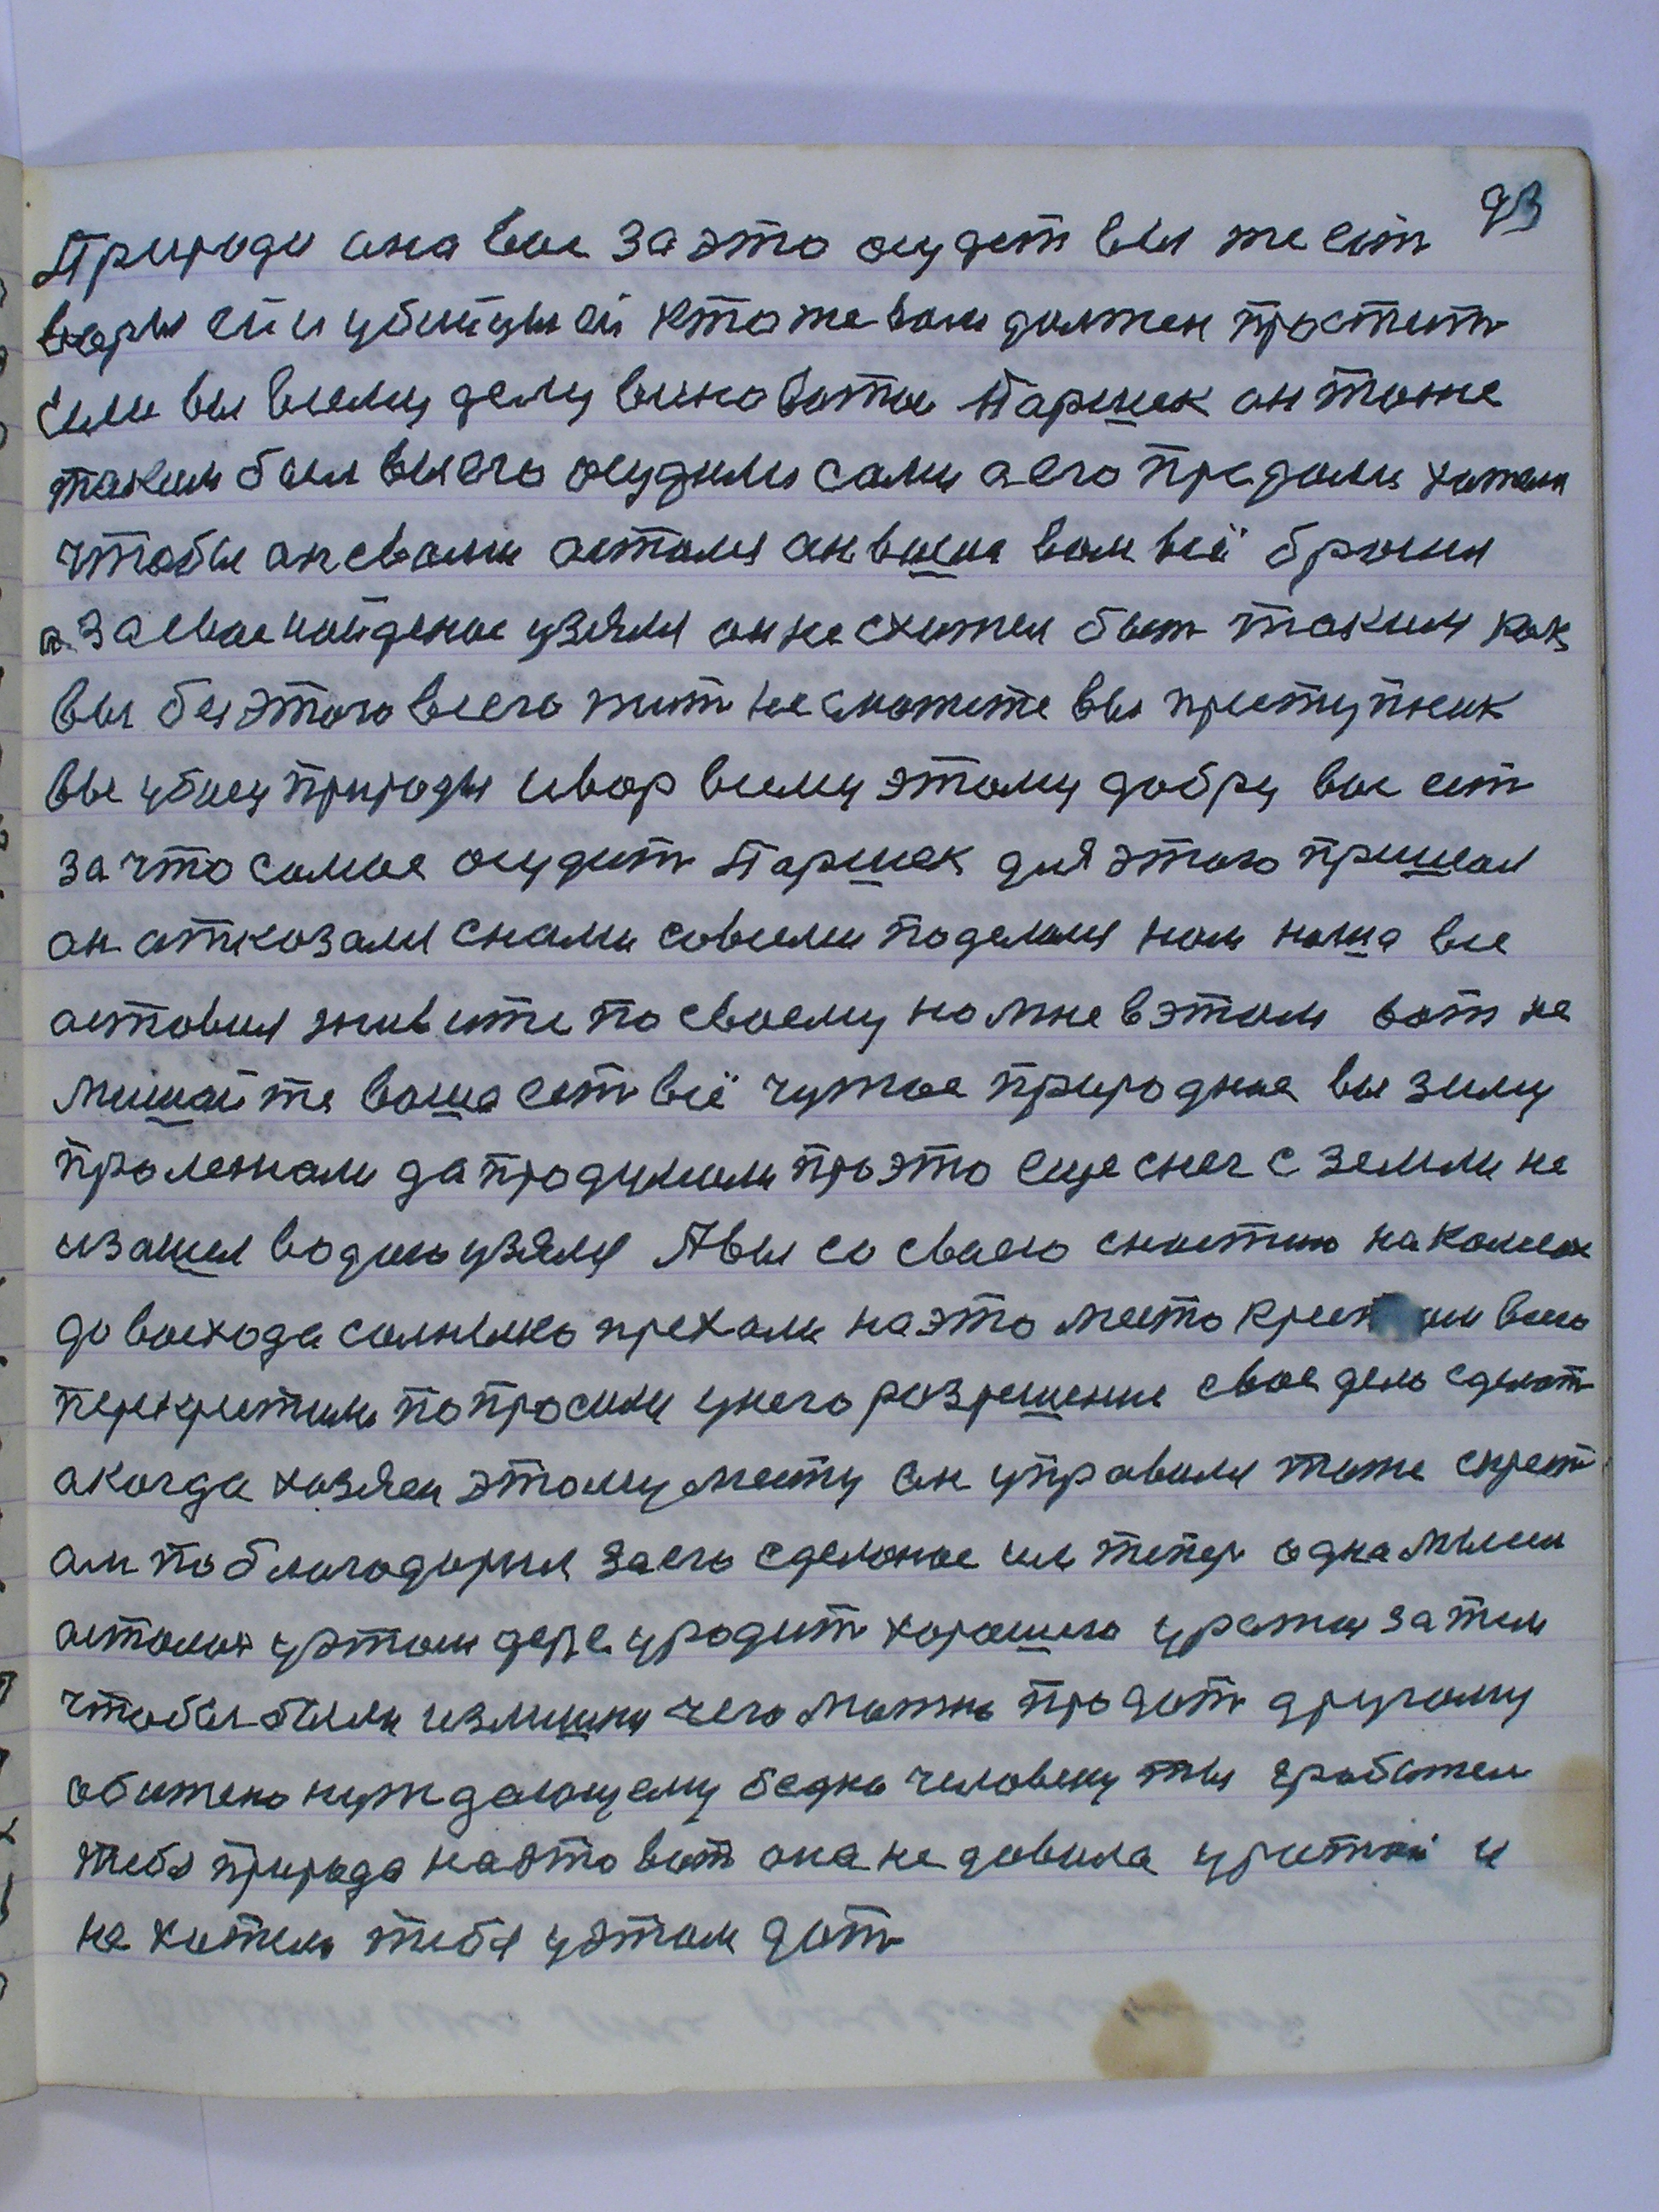 93
Природа она вас за это осудет вы же ест
воры ей и убийцы ей кто же вам должен простит
Если вы всему делу виноваты Паршек он тоже
таким был вы его осудили сами а его предали хотели
чтобы он свами остался он ваша вам всё бросил
а за свое найденое узялся он не схотел быт таким как
вы без этого всего жит не сможете вы преступник
вы убиец природы и вор всему этому добру вас ест
за что самое осудит Паршек для этого пришол
он отказался снами совсеми поделился нам наша все
оставил живите по своему но мне вэтом вот не
мишайте ваша ест всё чужое природное вы зиму
пролежали да продумали про это еще снег с земли не
изашел водою узялся А вы со своею снастию на колесах
до восхода солнышко прехали на это место крестом всего
перекрестили попросили у него разрешение свое дело сделат
а когда хозяен этому месту он управился тоже скрест
ом поблагодарил за его сделоное им тепер одна мысля
осталас уэтом деле уродит хорошего урожая за тем
чтобы были излишки чего можно продат другому
обижено нуждающему бедно человеку ты грабител
тебя природа на это вот она не довила уритой и
не хотела тебя уэтом дат